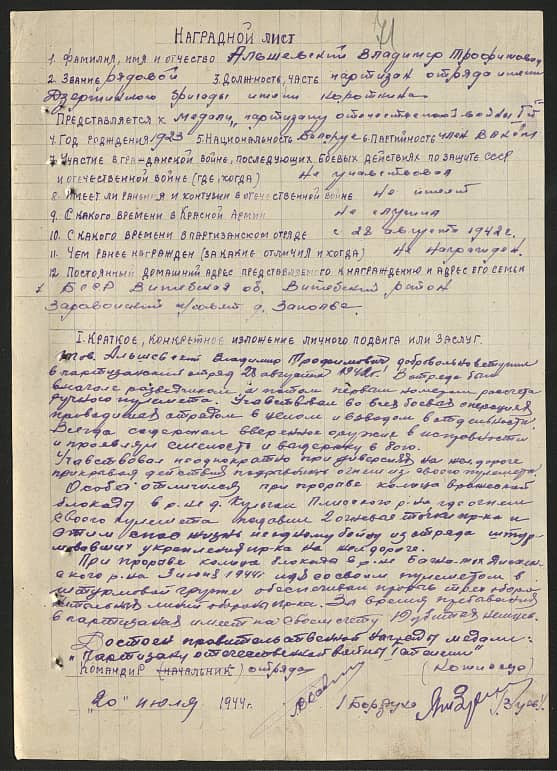 71
НАГРАДНОЙ ЛИСТ
1. Фамилия, имя и отчество Альшевский Владимир Трофимович
2. Звание рядовой 3. Должность, часть партизан отряда имени
Дзержинского бригады имени Короткина
Представляется к Медали „партизану отечественной войны I ст"
4. Год рождения 1923 5. Национальность Белорус 6. Партийность член ВЛКСМ
7. Участие в гражданской войне, последующих боевых действиях по защите СССР
и отечественной войне (где, когда) Не участвовал
8. Имеет ли ранения и контузии в отечественной войне Не имеет
9. С какого времени в Красной Армии Не служил
10. С какого времени в партизанском отряде с 28 августа 1942 г.
11. Чем ранее награжден (за какие отличия и когда) Не награжден.
12. Постоянный домашний адрес представляемого к награждению и адрес его семьи
БССР Витебская об. Витебский район
с/совет д.
I. Краткое, конкретное изложение личного подвига или заслуг.
Тов. Альшевский Владимир Трофимович добровольно вступил
в партизанский отряд 28 августа 1942 г. В отряде был
вначале разведчиком а потом первым номером расчета
ручного пулемета. Участвовал во всех боевых операциях
проводимых отрядом в целом и взводом в отдельности.
Всегда содержал вверенное оружие в исправности
и проявлял смелость и выдержку в бою.
Участвовал неоднократно при диверсиях на жел.дороге
прикрывая действия подрывников огнем из своего пулемета
Особо отличился при прорыве кольца вражеской
блокады в р-не д. р-на где огнем
своего пулемета подавил 2 огневые точки пр-ка и
этим спас жизнь не одному бойцу из отряда штур-
мовавших укрепления пр-ка на жел.дороге.
При прорыве кольца блокады в р-не
р-на 3 июня 1944 г. идя со своим пулеметом в
штурмовой группе обеспечивал прорыв трех оборо-
нительных линий обороны пр-ка. За время пребывания
в партизанах имеет на своем счету 19 убитых немцев.
Достоин правительственной награды медали:
„Партизану отечественной войны I степени"
Командир (начальник) отряда
„20" июля 1944 г.